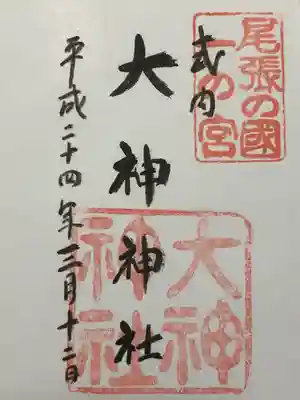 尾張の國
一の宮
式内
大神神社
大神
神社
平成二十四年三月十二日